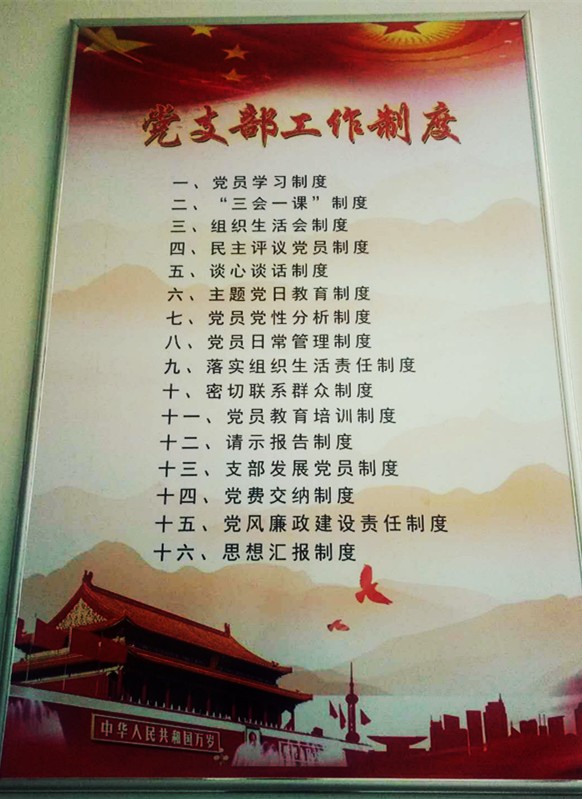 党支部工作制度
一、党员学习制度
二、“三会一课”制度
三、组织生活会制度
四、民主评议党员制度
五、谈心谈话制度
六、主题党日教育制度
七、党员党性分析制度
八、党员日常管理制度
九、落实组织生活责任制度
十、密切联系群众制度
十一、党员教育培训制度
十二、请示报告制度
十三、支部发展党员制度
十四、党费交纳制度
十五、党风廉政建设责任制度
十六、思想汇报制度
中华人民共和国万岁